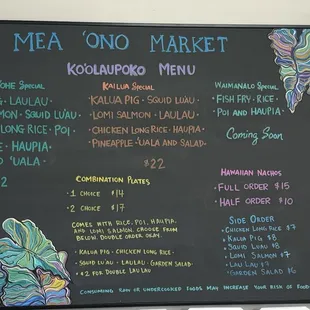 MEA 'ONO MARKET
KO'OLAUPOKO MENU
OHE SPECIAL
G · LAULAU ·
LMON · SQUID LU'AU ·
LONG RICE · POI ·
E · HAUPIA ·
'UALA
2
KAILUA SPECIAL
KALUA PIG · SQUID LU'AU ·
LOMI SALMON · LAULAU ·
CHICKEN LONG RICE · HAUPIA ·
PINEAPPLE · 'UALA AND SALAD ·
$22
WAIMANALO SPECIAL
· FISH FRY · RICE ·
POI AND HAUPIA ·
Coming Soon
COMBINATION PLATES
· 1 CHOICE $14
· 2 CHOICE $17
COMES WITH RICE, POI, HAUPIA,
AND LOMI SALMON. CHOOSE FROM
BELOW. DOUBLE ORDER OKAY.
· KALUA PIG · CHICKEN LONG RICE ·
SQUID LU'AU · LAULAU · GARDEN SALAD
· +$2 FOR DOUBLE LAU LAU
HAWAIIAN NACHOS
· FULL ORDER $15
· HALF ORDER $10
SIDE ORDER
· CHICKEN LONG RICE $7
· KALUA PIG $8
· SQUID LUAU $8
· LOMI SALMON $7
· LAU LAU $7
· GARDEN SALAD $6
CONSUMING RAW OR UNDERCOOKED FOODS MAY INCREASE YOUR RISK OF FOOD